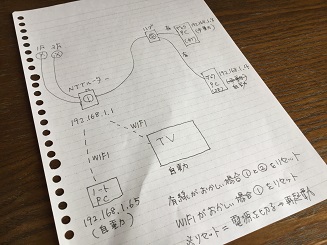 1F 2F
ハブ
②
192.168.1.3
PC
(自動)
NTTルーター
①
右
右
192.168.1.4
PC
自動
192.168.1.1
WIFI
WIFI
TV
自動
ノート
PC
192.168.1.65
(自動)
有線がおかしい場合①と②をリセット
WIFIがおかしい場合①をリセット
※リセット=電源を切る→再起動